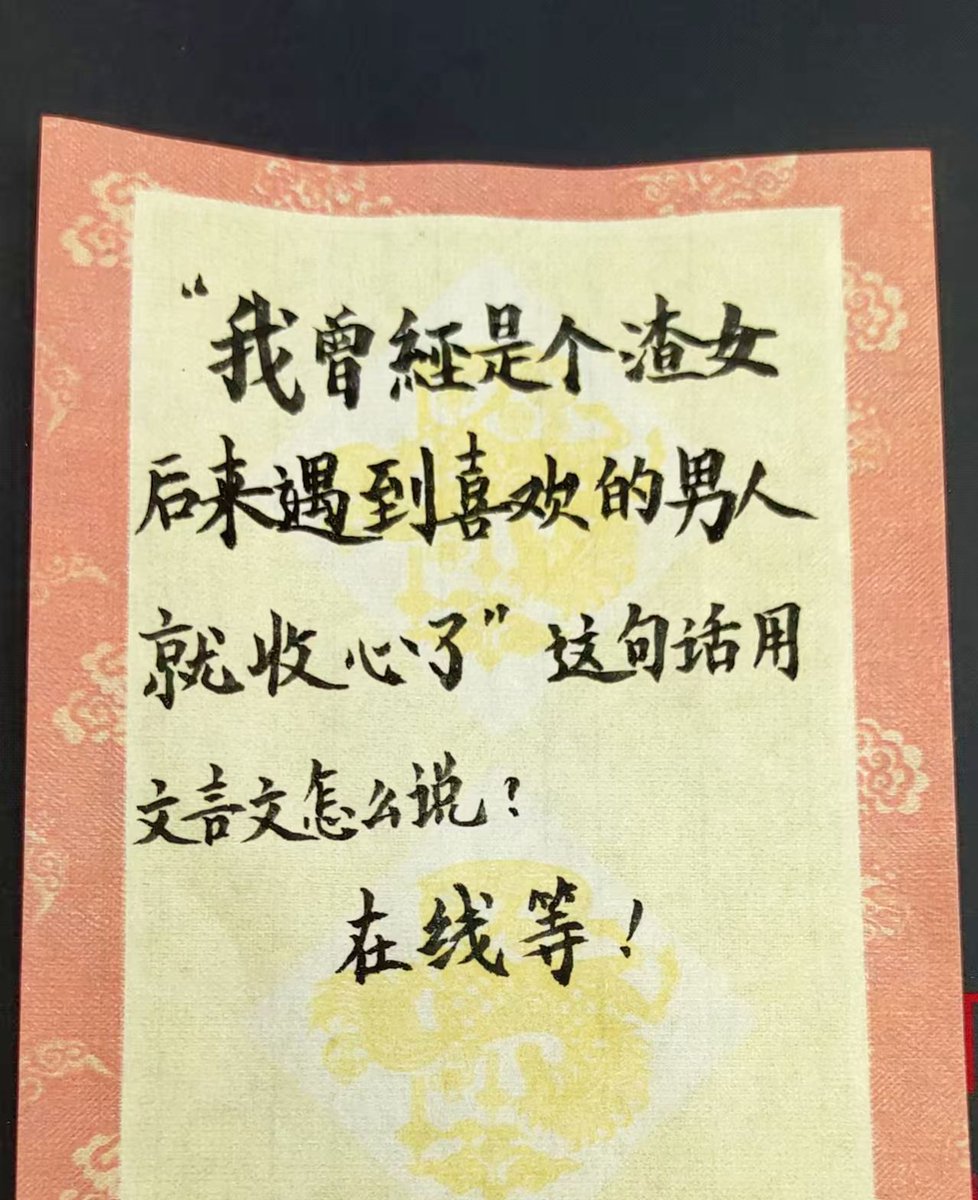 “我曾經是个渣女
后来遇到喜欢的男人
就收心了”这句话用
文言文怎么说？
在线等！